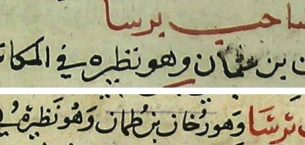 صاحب برسا
بن عثمان وهو نظيره في المكا
برسا وهو رخان بن طمان وهو نظيره في